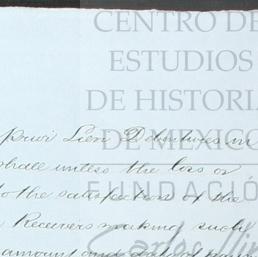 CENTRO DE
ESTUDIOS
DE HISTORIA
DE MEXICO
FUNDACIÓN
Carlos Slim
prior Lien Debentures in
shall unless the loss or
to the satisfaction of the
Receivers making such
amount and